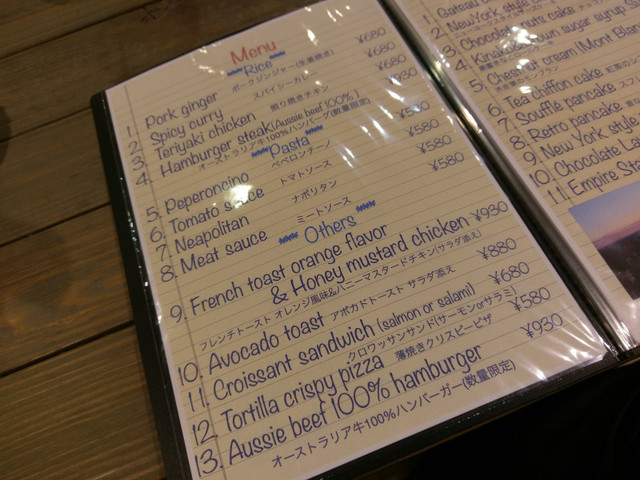 Menu
Rice
1. Pork ginger ポークジンジャー(生姜焼き) ¥680
2. Spicy curry スパイシーカレー ¥680
3. Teriyaki chicken 照り焼きチキン ¥680
4. Hamburger steak(Aussie beef 100%) ¥930
オーストラリア牛100%ハンバーグ(数量限定)
Pasta
5. Peperoncino ペペロンチーノ ¥580
6. Tomato sauce トマトソース ¥580
7. Neapolitan ナポリタン ¥580
8. Meat sauce ミートソース
Others
9. French toast orange flavor
& Honey mustard chicken ¥930
フレンチトースト オレンジ風味&ハニーマスタードチキン(サラダ添え)
10. Avocado toast アボカドトースト サラダ添え ¥880
11. Croissant sandwich (salmon or salami) ¥680
クロワッサンサンド(サーモンorサラミ)
12. Tortilla crispy pizza 薄焼きクリスピーピザ ¥580
13. Aussie beef 100% hamburger ¥930
オーストラリア牛100%ハンバーガー(数量限定)
1. Gateau
2. NewYork style
3. Chocolate nuts cake
4. Kinako brown sugar syrup
5. Chestnut cream (Mont Blan
6. Tea chiffon cake 紅茶のシ
7. Soufflé pancake ス
8. Retro pancake
9. New York style
10. Chocolate La
11. Empire St